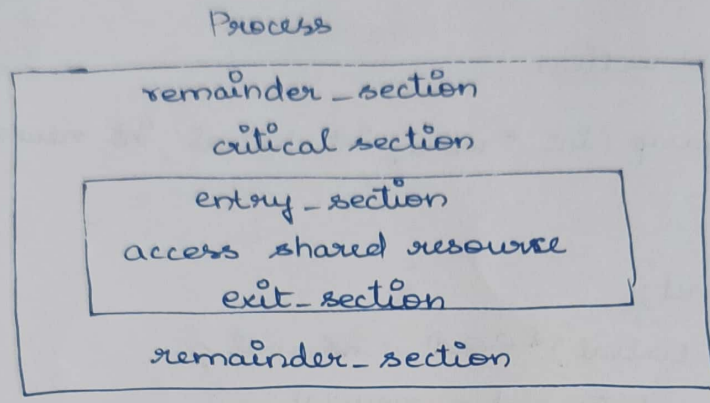 Process
remainder_section
critical section
entry_section
access shared resourse
exit_section
remainder_section